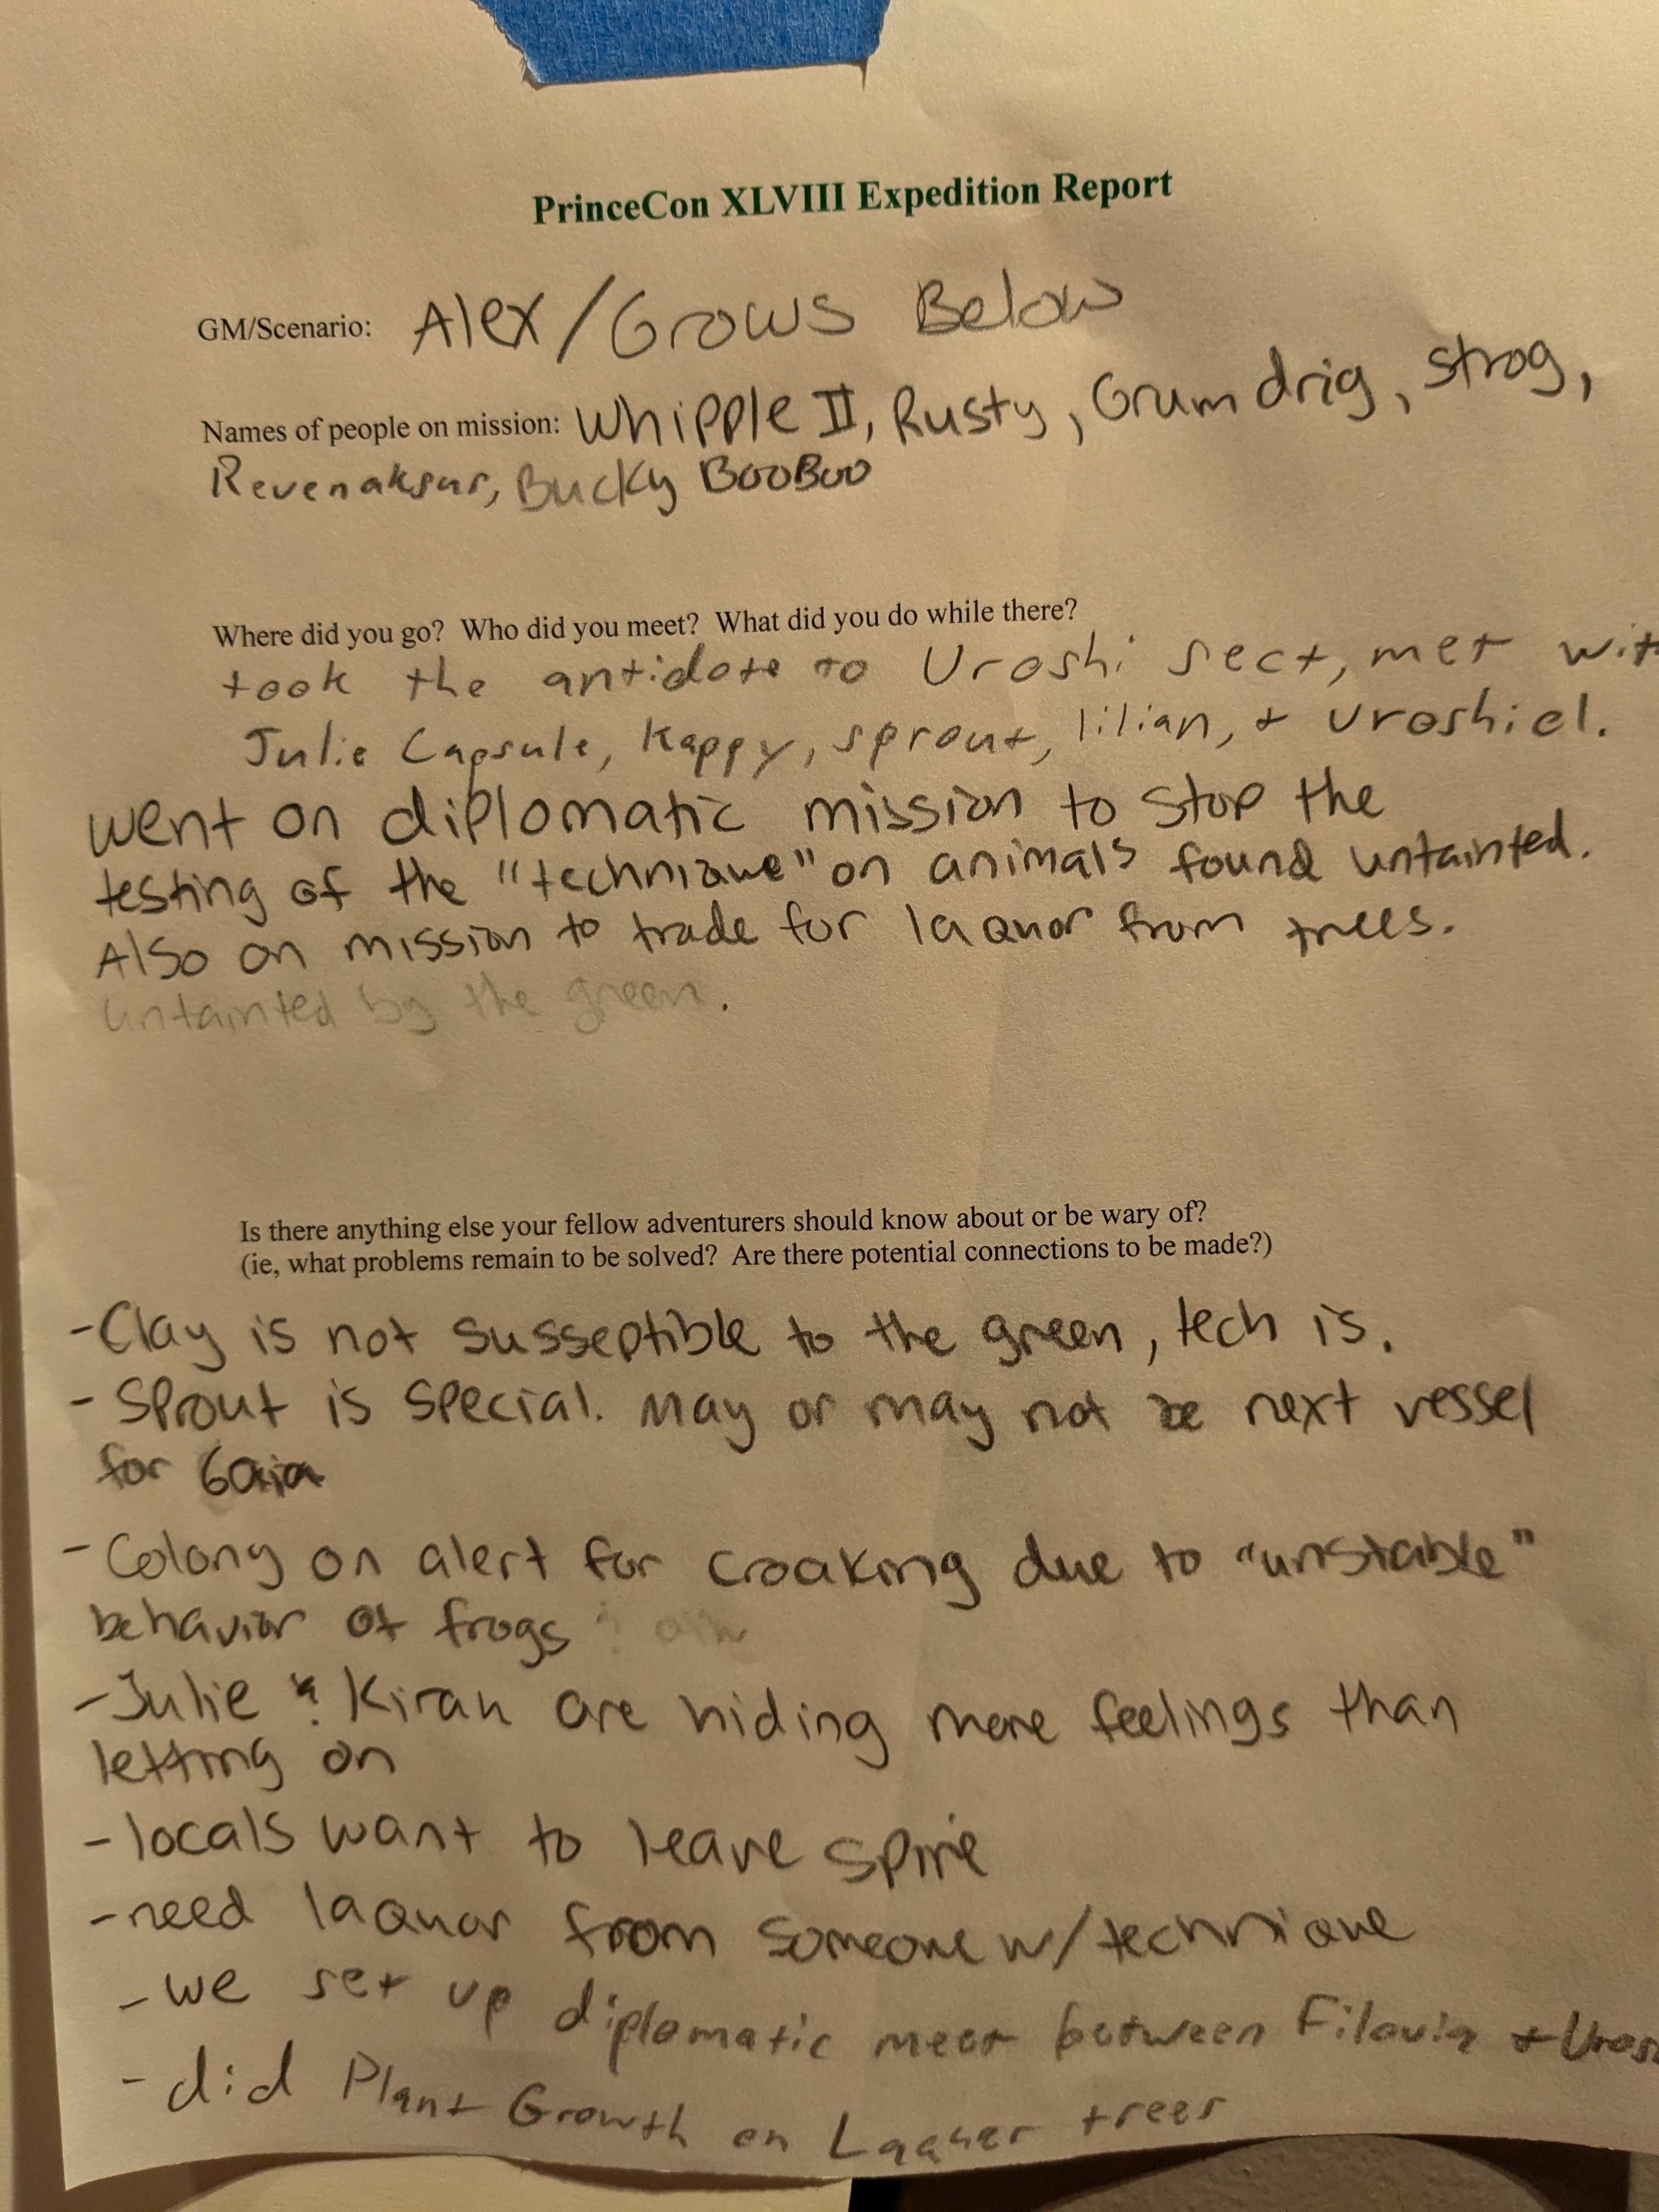 PrinceCon XLVIII Expedition Report
GM/Scenario: Alex/Grows Below
Names of people on mission: Whipple II, Rusty, Grumdrig, Strog,
Revenaksur, Bucky BooBoo
Where did you go? Who did you meet? What did you do while there?
took the antidote to Uroshi sect, met wit
Julie Capsule, Kappy, sprout, lilian, + Uroshiel.
went on diplomatic mission to stop the
testing of the "technique" on animals found untainted.
Also on mission to trade for laquor from trees.
untainted by the green.
Is there anything else your fellow adventurers should know about or be wary of?
(ie, what problems remain to be solved? Are there potential connections to be made?)
- Clay is not susseptible to the green, tech is.
- Sprout is special. May or may not be next vessel
for Gaia
- Colony on alert for croaking due to "unstable"
behavior of frogs
- Julie & Kiran are hiding more feelings than
letting on
- locals want to leave spire
- need laquor from someone w/technique
- we set up diplomatic meet between Filavia + Uros
- did Plant Growth on Laquer trees